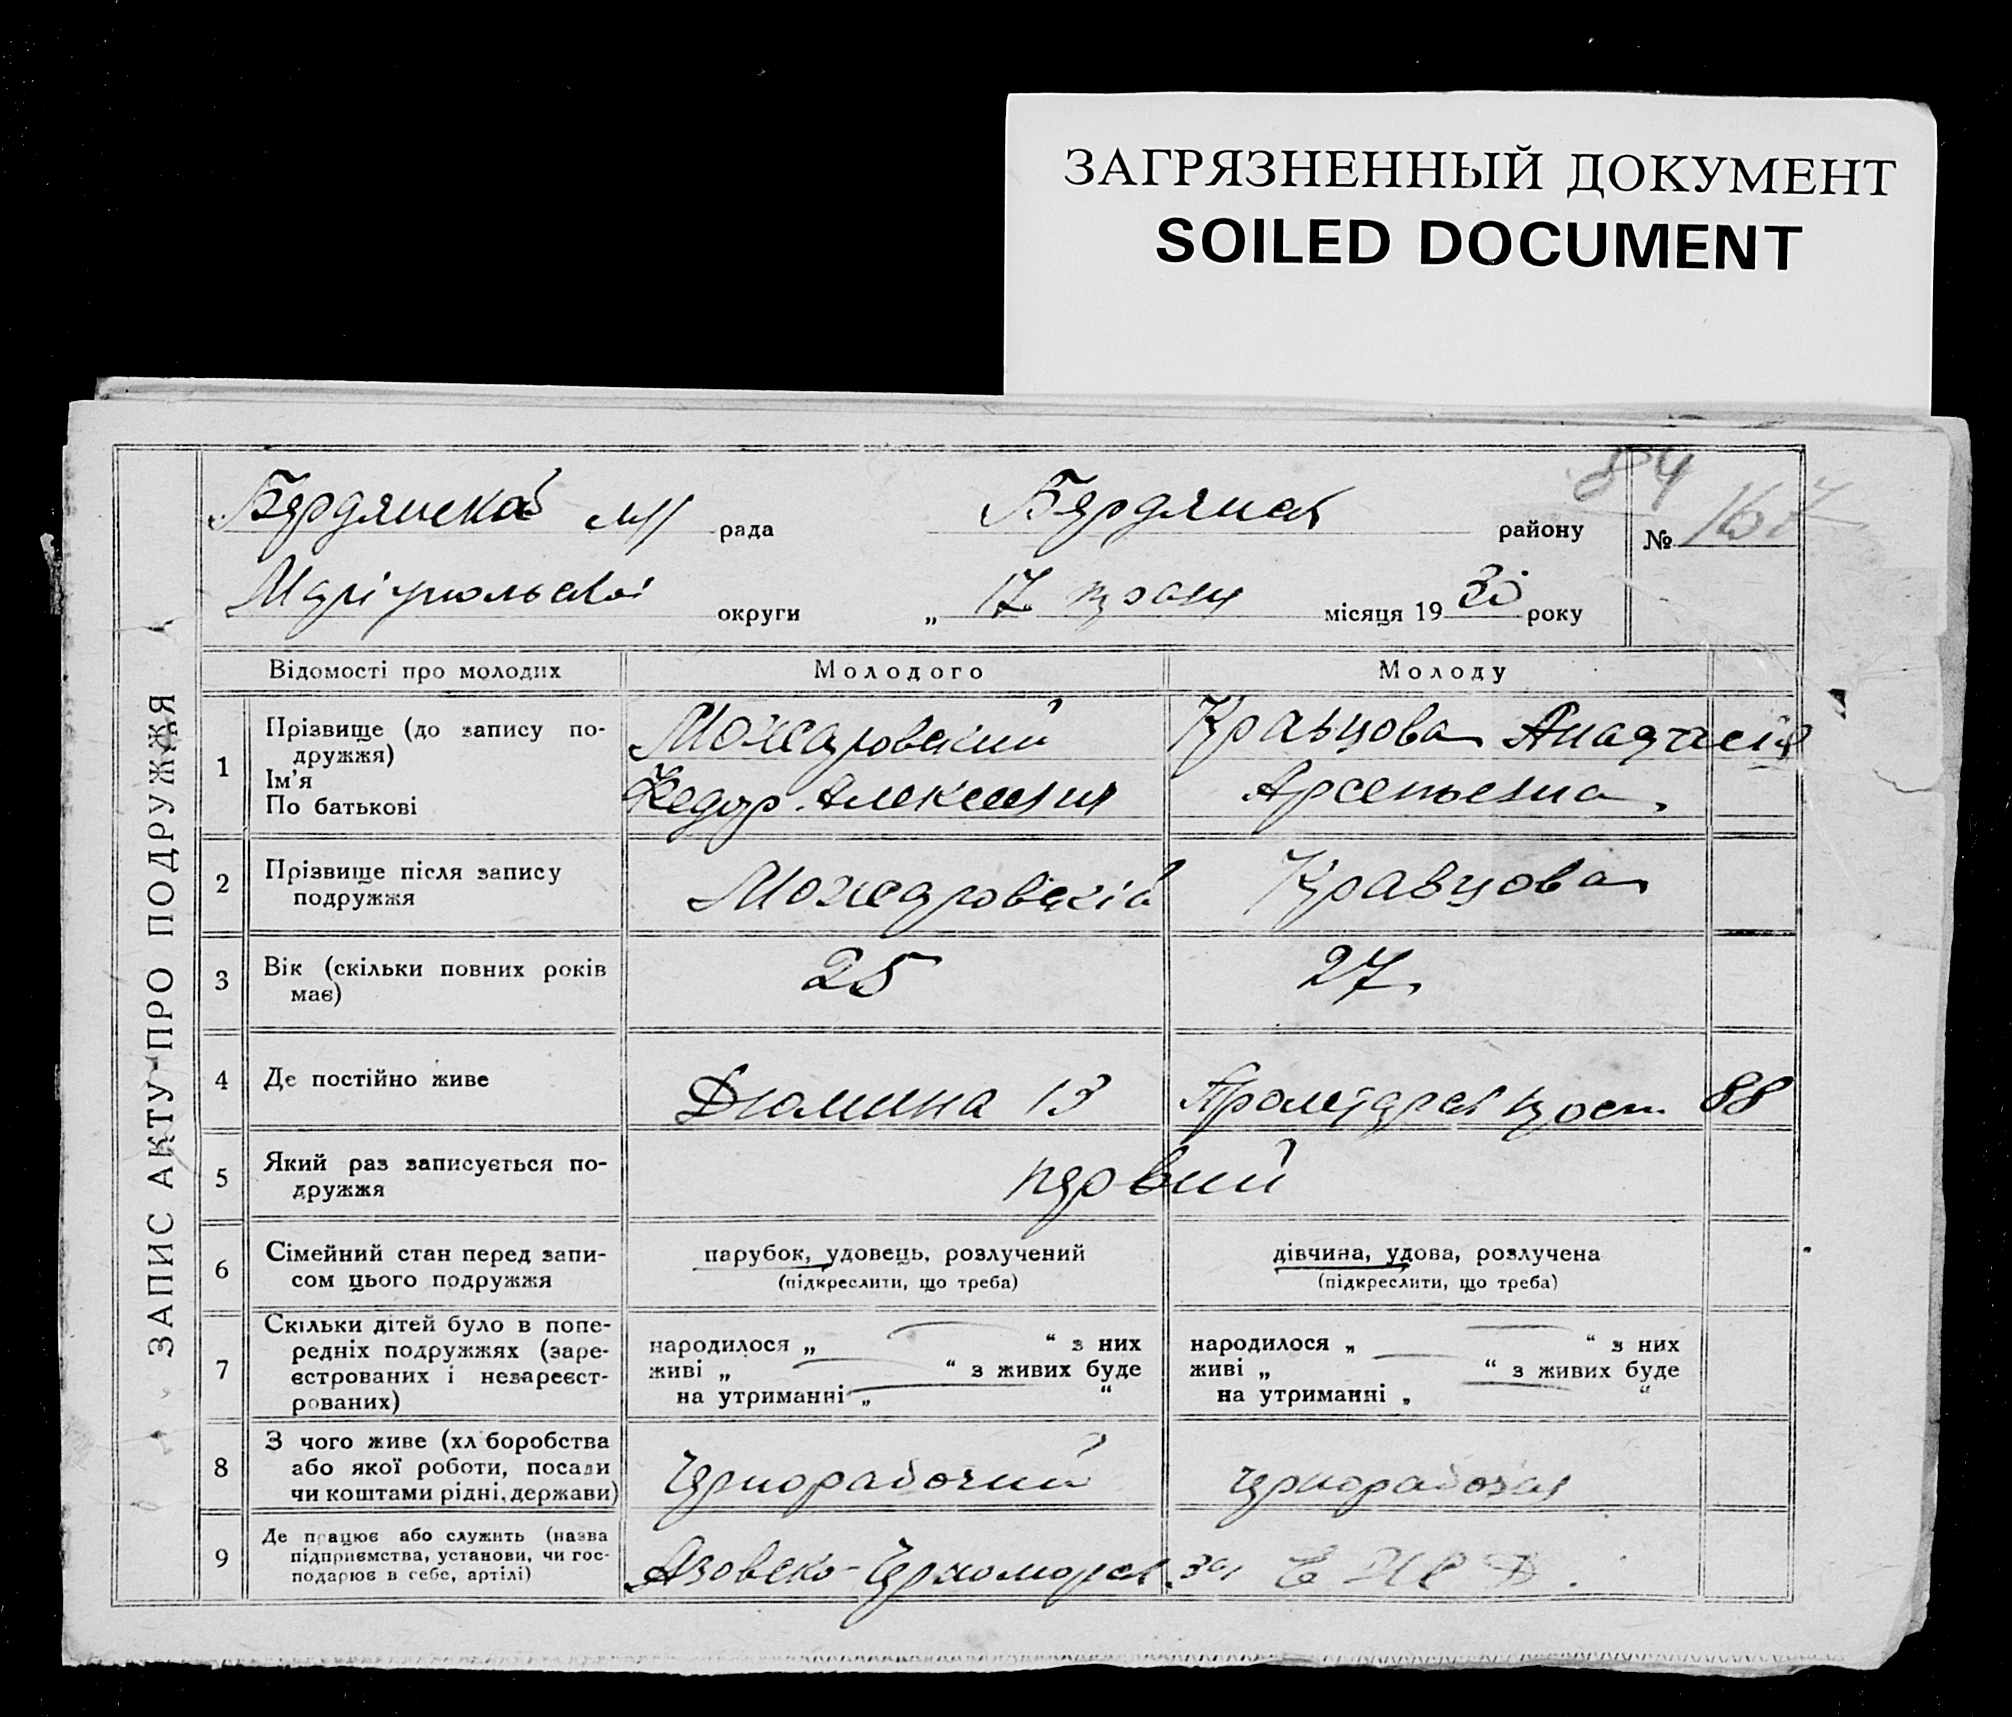 ЗАГРЯЗНЕННЫЙ ДОКУМЕНТ
SOILED DOCUMENT
84
Бердянской рада Бердянск району № 167
Маріупольської округи „ 17 місяця 1930 року
ЗАПИС АКТУ ПРО ПОДРУЖЖЯ
Відомості про молодих Молодого Молоду
1 Прізвище (до запису по-
дружжя)
Ім'я
По батькові
Можаровский
Федор Алексеев
Кравцова Анастасія
Арсентьевна
2 Прізвище після запису
подружжя
Можаровскій Кравцова
3 Вік (скільки повних років
має)
25 27
4 Де постійно живе Дюмина 13 88
5 Який раз записується по-
дружжя
первий
6 Сімейний стан перед запи-
сом цього подружжя
парубок, удовець, розлучений
(підкреслити, що треба)
дівчина, удова, розлучена
(підкреслити, що треба)
7 Скільки дітей було в попе-
редніх подружжях (заре-
єстрованих і незареєст-
рованих)
народилося „ “ з них
живі „ “ з живих буде
на утриманні „ “
народилося „ “ з них
живі „ “ з живих буде
на утриманні „ “
8 З чого живе (хл боробства
або якої роботи, посади
чи коштами рідні, держави)
Чернорабочий чернорабочая
9 Де працює або служить (назва
підприємства, установи, чи гос-
подарює в себе, артілі)
Азовско-Черноморск. зав